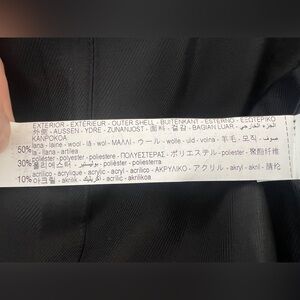 EXTERIOR - EXTÉRIEUR - OUTER SHELL - BUITENKANT - ESTERNO - ΕΞΩΤΕΡΙΚΟ
外側 - AUSSEN - YDRE - ZUNANJOST - 面料 - 겉감 - BAGIAN LUAR - الجزء الخارجي
KANPOKOA
50% lana - laine - wool - lã - wol - ΜΑΛΛΙ - ウール - wolle - uld - volna - 羊毛 - 모직 - صوف
la - llana - artilea
30% poliéster - polyester - poliestere - ΠΟΛΥΕΣΤΕΡΑΣ - ポリエステル - poliester - 聚酯纤维
폴리에스터 - بوليستير - poliesterra
10% acrílico - acrylique - acrylic - acryl - acrilico - ΑΚΡΥΛΙΚΟ - アクリル - akryl - akril - 腈纶
아크릴 - akrilik - اكريليك - acrílic - akrilikoa